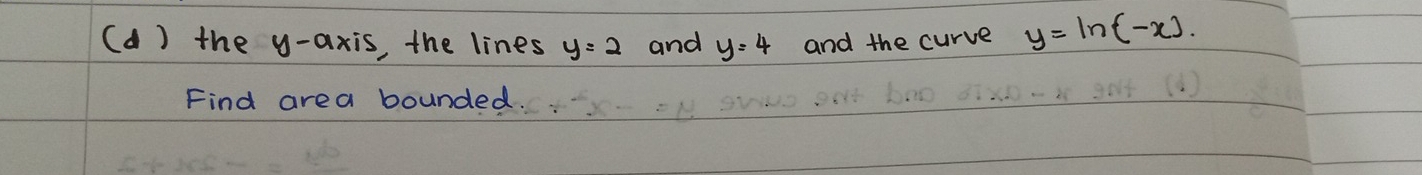 (d) the y-axis, the lines y=2 and y=4 and the curve y = ln(-x).
Find area bounded.